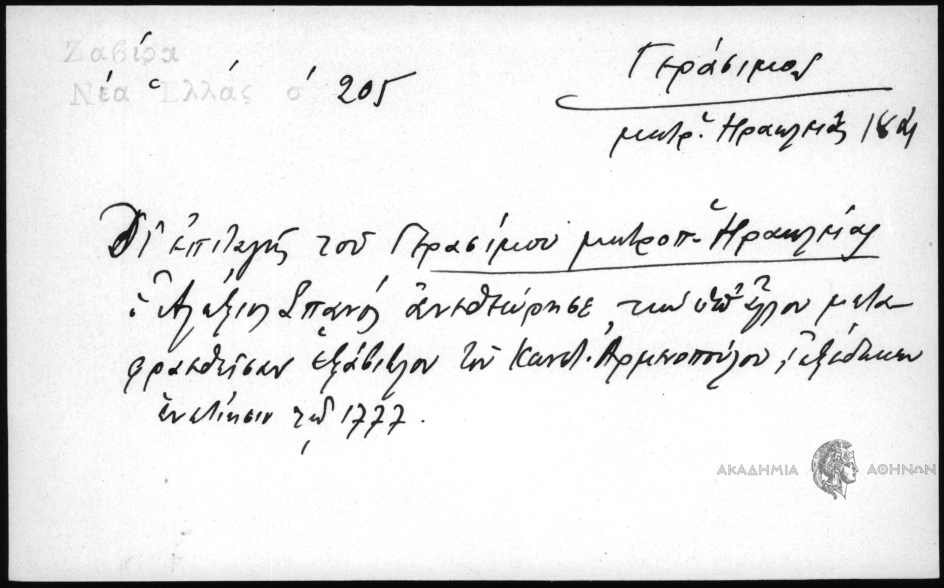 Ζαβίρα
Νέα Ἑλλάς σ 205
Γεράσιμος
μητρ. Ἡρακλείας 18
Δι' ἐπιταγῆς τοῦ Γερασίμου μητροπ. Ἡρακλείας
ὁ Ἀλέξιος Σπανός ἀνεθεώρησε τὴν ὑπ' ἄλλου μετα-
φρασθεῖσαν ἑξάβιβλον τοῦ Κωνστ. Ἁρμενοπούλου,
ἐν 1777.
ΑΚΑΔΗΜΙΑ ΑΘΗΝΩΝ